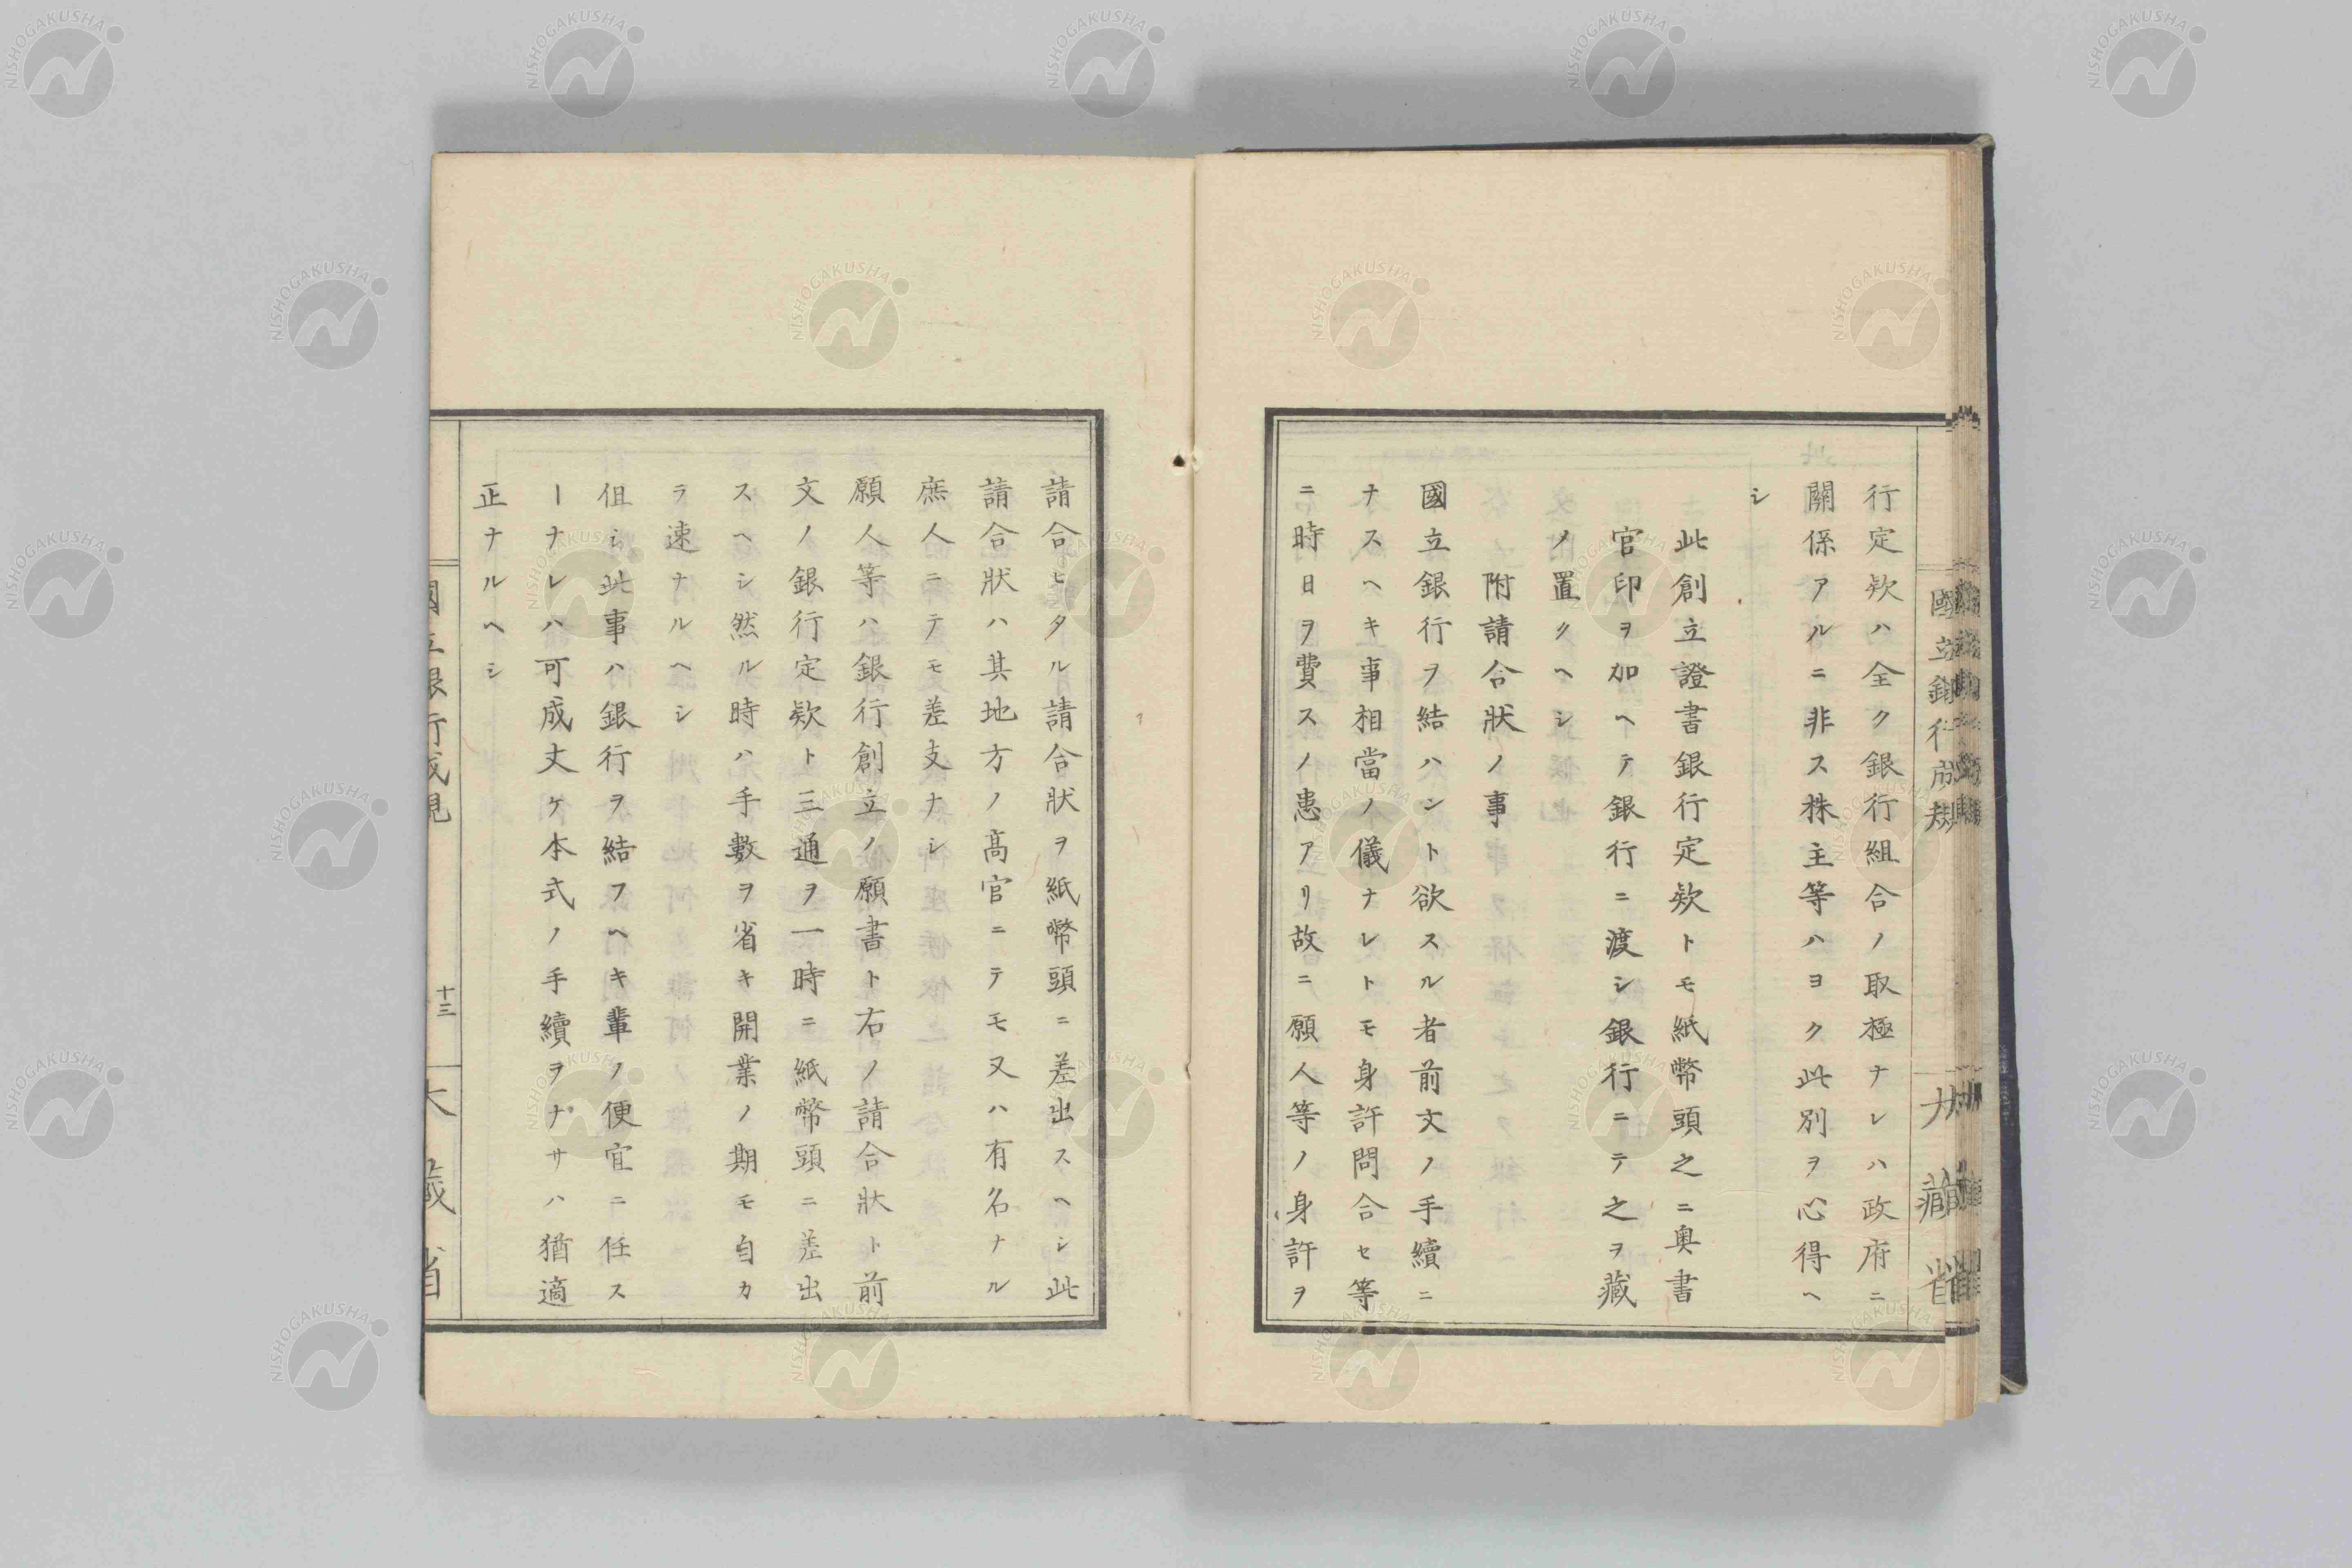 行定欵ハ全ク銀行組合ノ取極ナレハ政府ニ
關係アルニ非ス株主等ハヨク此別ヲ心得ヘ
シ
此創立證書銀行定欵トモ紙幣頭之ニ奥書
官印ヲ加ヘテ銀行ニ渡シ銀行ニテ之ヲ藏
ノ置クヘシ
附請合狀ノ事
國立銀行ヲ結ハント欲スル者前文ノ手續ニ
ナスヘキ事相當ノ儀ナレトモ身許問合セ等
ニ時日ヲ費スノ患アリ故ニ願人等ノ身許ヲ
請合ヒタル請合狀ヲ紙幣頭ニ差出スヘシ此
請合狀ハ其地方ノ高官ニテモ又ハ有名ナル
庶人ニテモ差支ナシ
願人等ハ銀行創立ノ願書ト右ノ請合狀ト前
文ノ銀行定欵ト三通ヲ一時ニ紙幣頭ニ差出
スヘシ然ル時ハ手數ヲ省キ開業ノ期モ自カ
ラ速ナルヘシ
伹シ此事ハ銀行ヲ結フヘキ輩ノ便宜ニ任ス
ーナレハ可成丈ケ本式ノ手續ヲナサハ猶適
正ナルヘシ
國立銀行成規
十三
大藏省
NISHOGAKUSHA